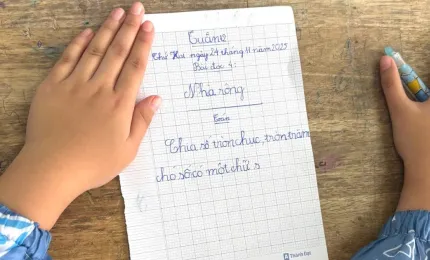 Thứ Hai ngày 24 tháng 11 năm 2025
Bài đọc 4:
Nhà rông
Toán
Chia số tròn chục, tròn trăm
cho số có một chữ s